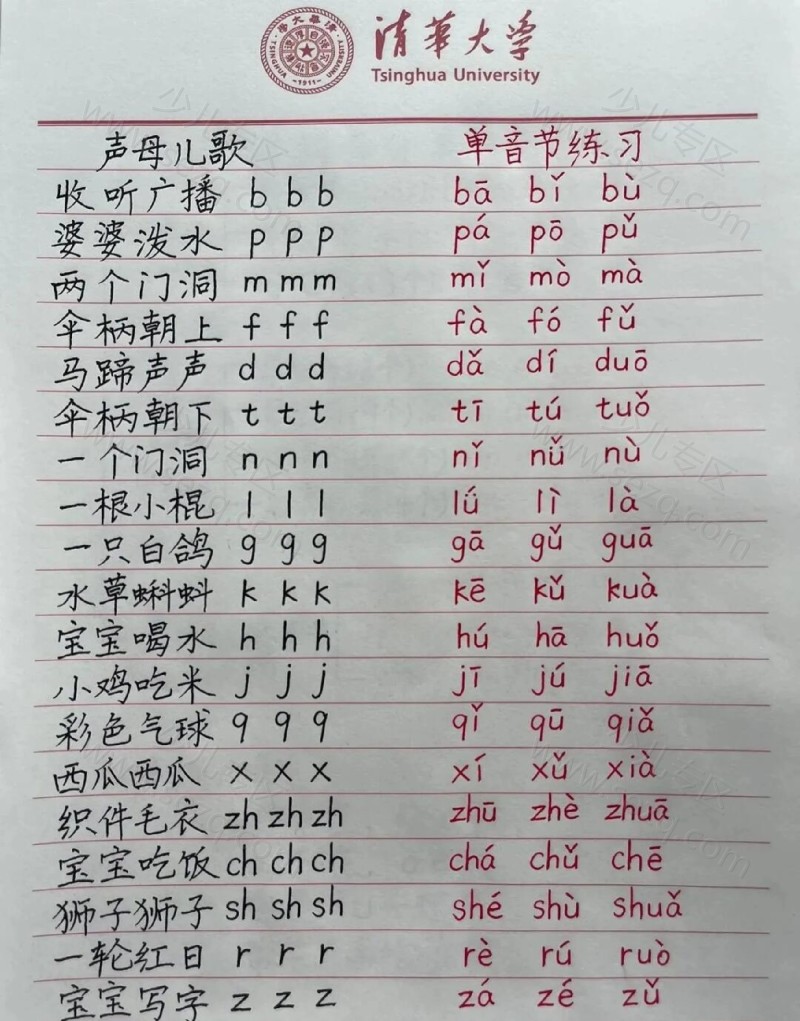 清华大学
Tsinghua University
TSINGHUA UNIVERSITY
1911
声母儿歌 单音节练习
收听广播 b b b bā bǐ bù
婆婆泼水 p p p pá pō pǔ
两个门洞 m m m mǐ mò mà
伞柄朝上 f f f fà fó fǔ
马蹄声声 d d d dǎ dí duō
伞柄朝下 t t t tī tú tuǒ
一个门洞 n n n nǐ nǚ nù
一根小棍 l l l lǘ lì là
一只白鸽 g g g gā gǔ guā
水草蝌蚪 k k k kē kǔ kuà
宝宝喝水 h h h hú hā huǒ
小鸡吃米 j j j jī jú jiā
彩色气球 q q q qǐ qū qiǎ
西瓜西瓜 x x x xí xǔ xià
织件毛衣 zh zh zh zhū zhè zhuā
宝宝吃饭 ch ch ch chá chǔ chē
狮子狮子 sh sh sh shé shù shuǎ
一轮红日 r r r rè rú ruò
宝宝写字 z z z zá zé zǔ